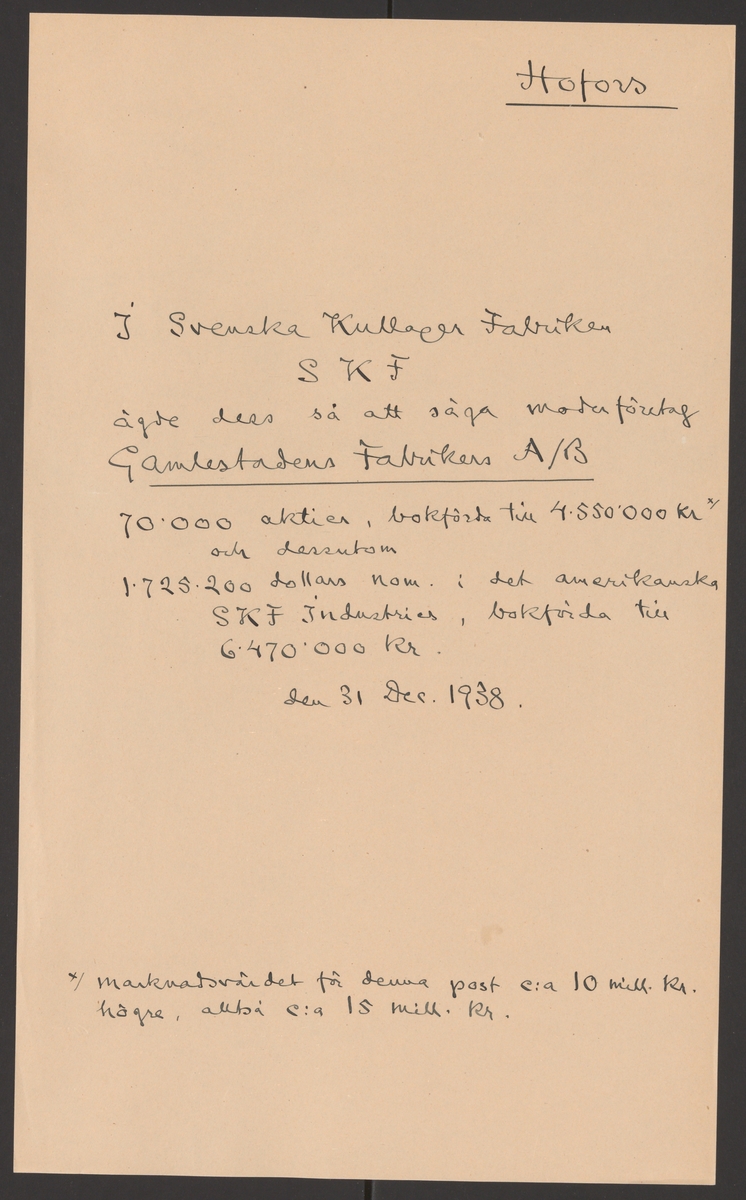 Hofors
I Svenska Kullager Fabriken
S K F
ägde dess så att säga moderföretag
Gamlestadens Fabrikers A/B
70·000 aktier, bokförda till 4·550'000 Kr x/
och dessutom
1·725·200 dollars nom. i det amerikanska
SKF Industries, bokförda till
6·470'000 Kr.
den 31 Dec. 1938.
x/ marknadsvärdet för denna post c:a 10 mill. Kr.
högre, alltså c:a 15 mill. Kr.